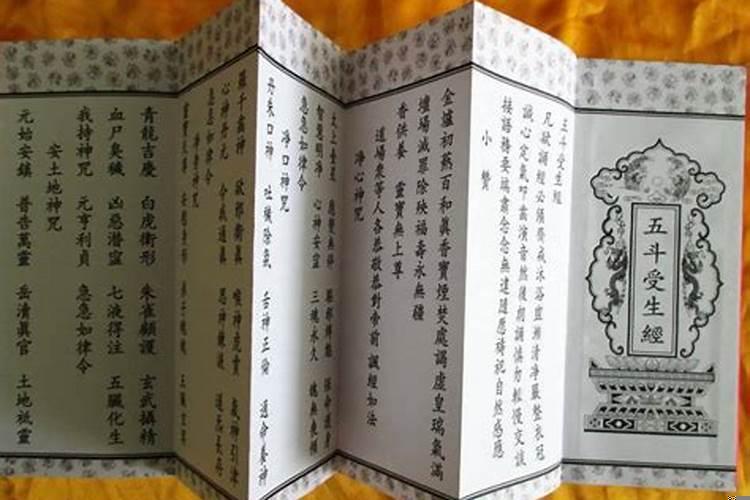 五斗受生經
五斗受生經
凡欲誦經必須齋戒沐浴
誠心定氣叩齒演音然後朗誦慎勿輕慢交談
接語務要端肅念念無違隨愿禱祀自然感應
小讚
金爐初爇百和真香寶煙焚處謁虛皇瑞氣滿
壇場滅罪除殃福壽永無疆
香供養 靈寶無上尊
道場衆等人各恭敬恭對帝前 誦經如法
淨心神咒
太上台星 應變無停
智慧明淨 心神安寧 三魂永久
急急如律令
淨口神咒
丹朱口神 吐穢除氛 舌神正倫 通命養神
羅千齒神 却邪衛真 喉神虎賁 氣神引津
心神丹元 令我通真 思神鍊液 道炁長存
急急如律令
淨身神咒
青龍吉慶 白虎衛形 朱雀顧護 玄武攝精
血尸臭穢 凶惡潛寧 七液得注 五臟化生
我持神咒 元亨利貞 急急如律令
安土地神咒
元始安鎮 普告萬靈 岳瀆真官 土地祗靈